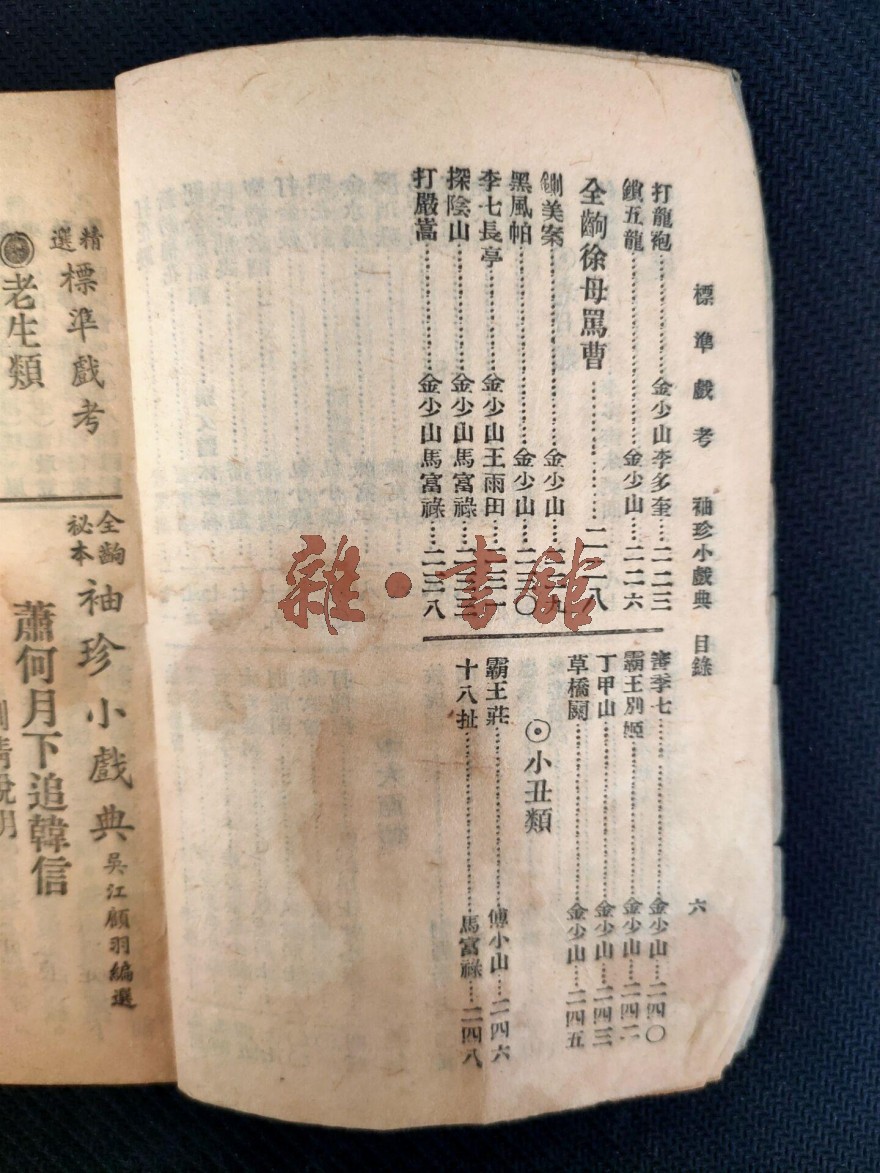 標準戲考 袖珍小戲典 目錄 六
打龍袍…金少山李多奎…二二三
鎖五龍…金少山…二二六
全齣徐母罵曹…二二八
鍘美案…金少山…二二九
黑風帕…金少山…二三〇
李七長亭…金少山王雨田…二三一
探陰山…金少山馬富祿…二三三
打嚴嵩…金少山馬富祿…二三八
審李七…金少山…二四〇
霸王別姬…金少山…二四二
丁甲山…金少山…二四三
草橋關…金少山…二四五
⊙小丑類
霸王莊…傅小山…二四六
十八扯…馬富祿…二四八
雜·書館
精選 標準戲考
老生類
全齣秘本 袖珍小戲典 吳江顧羽編選
蕭何月下追韓信